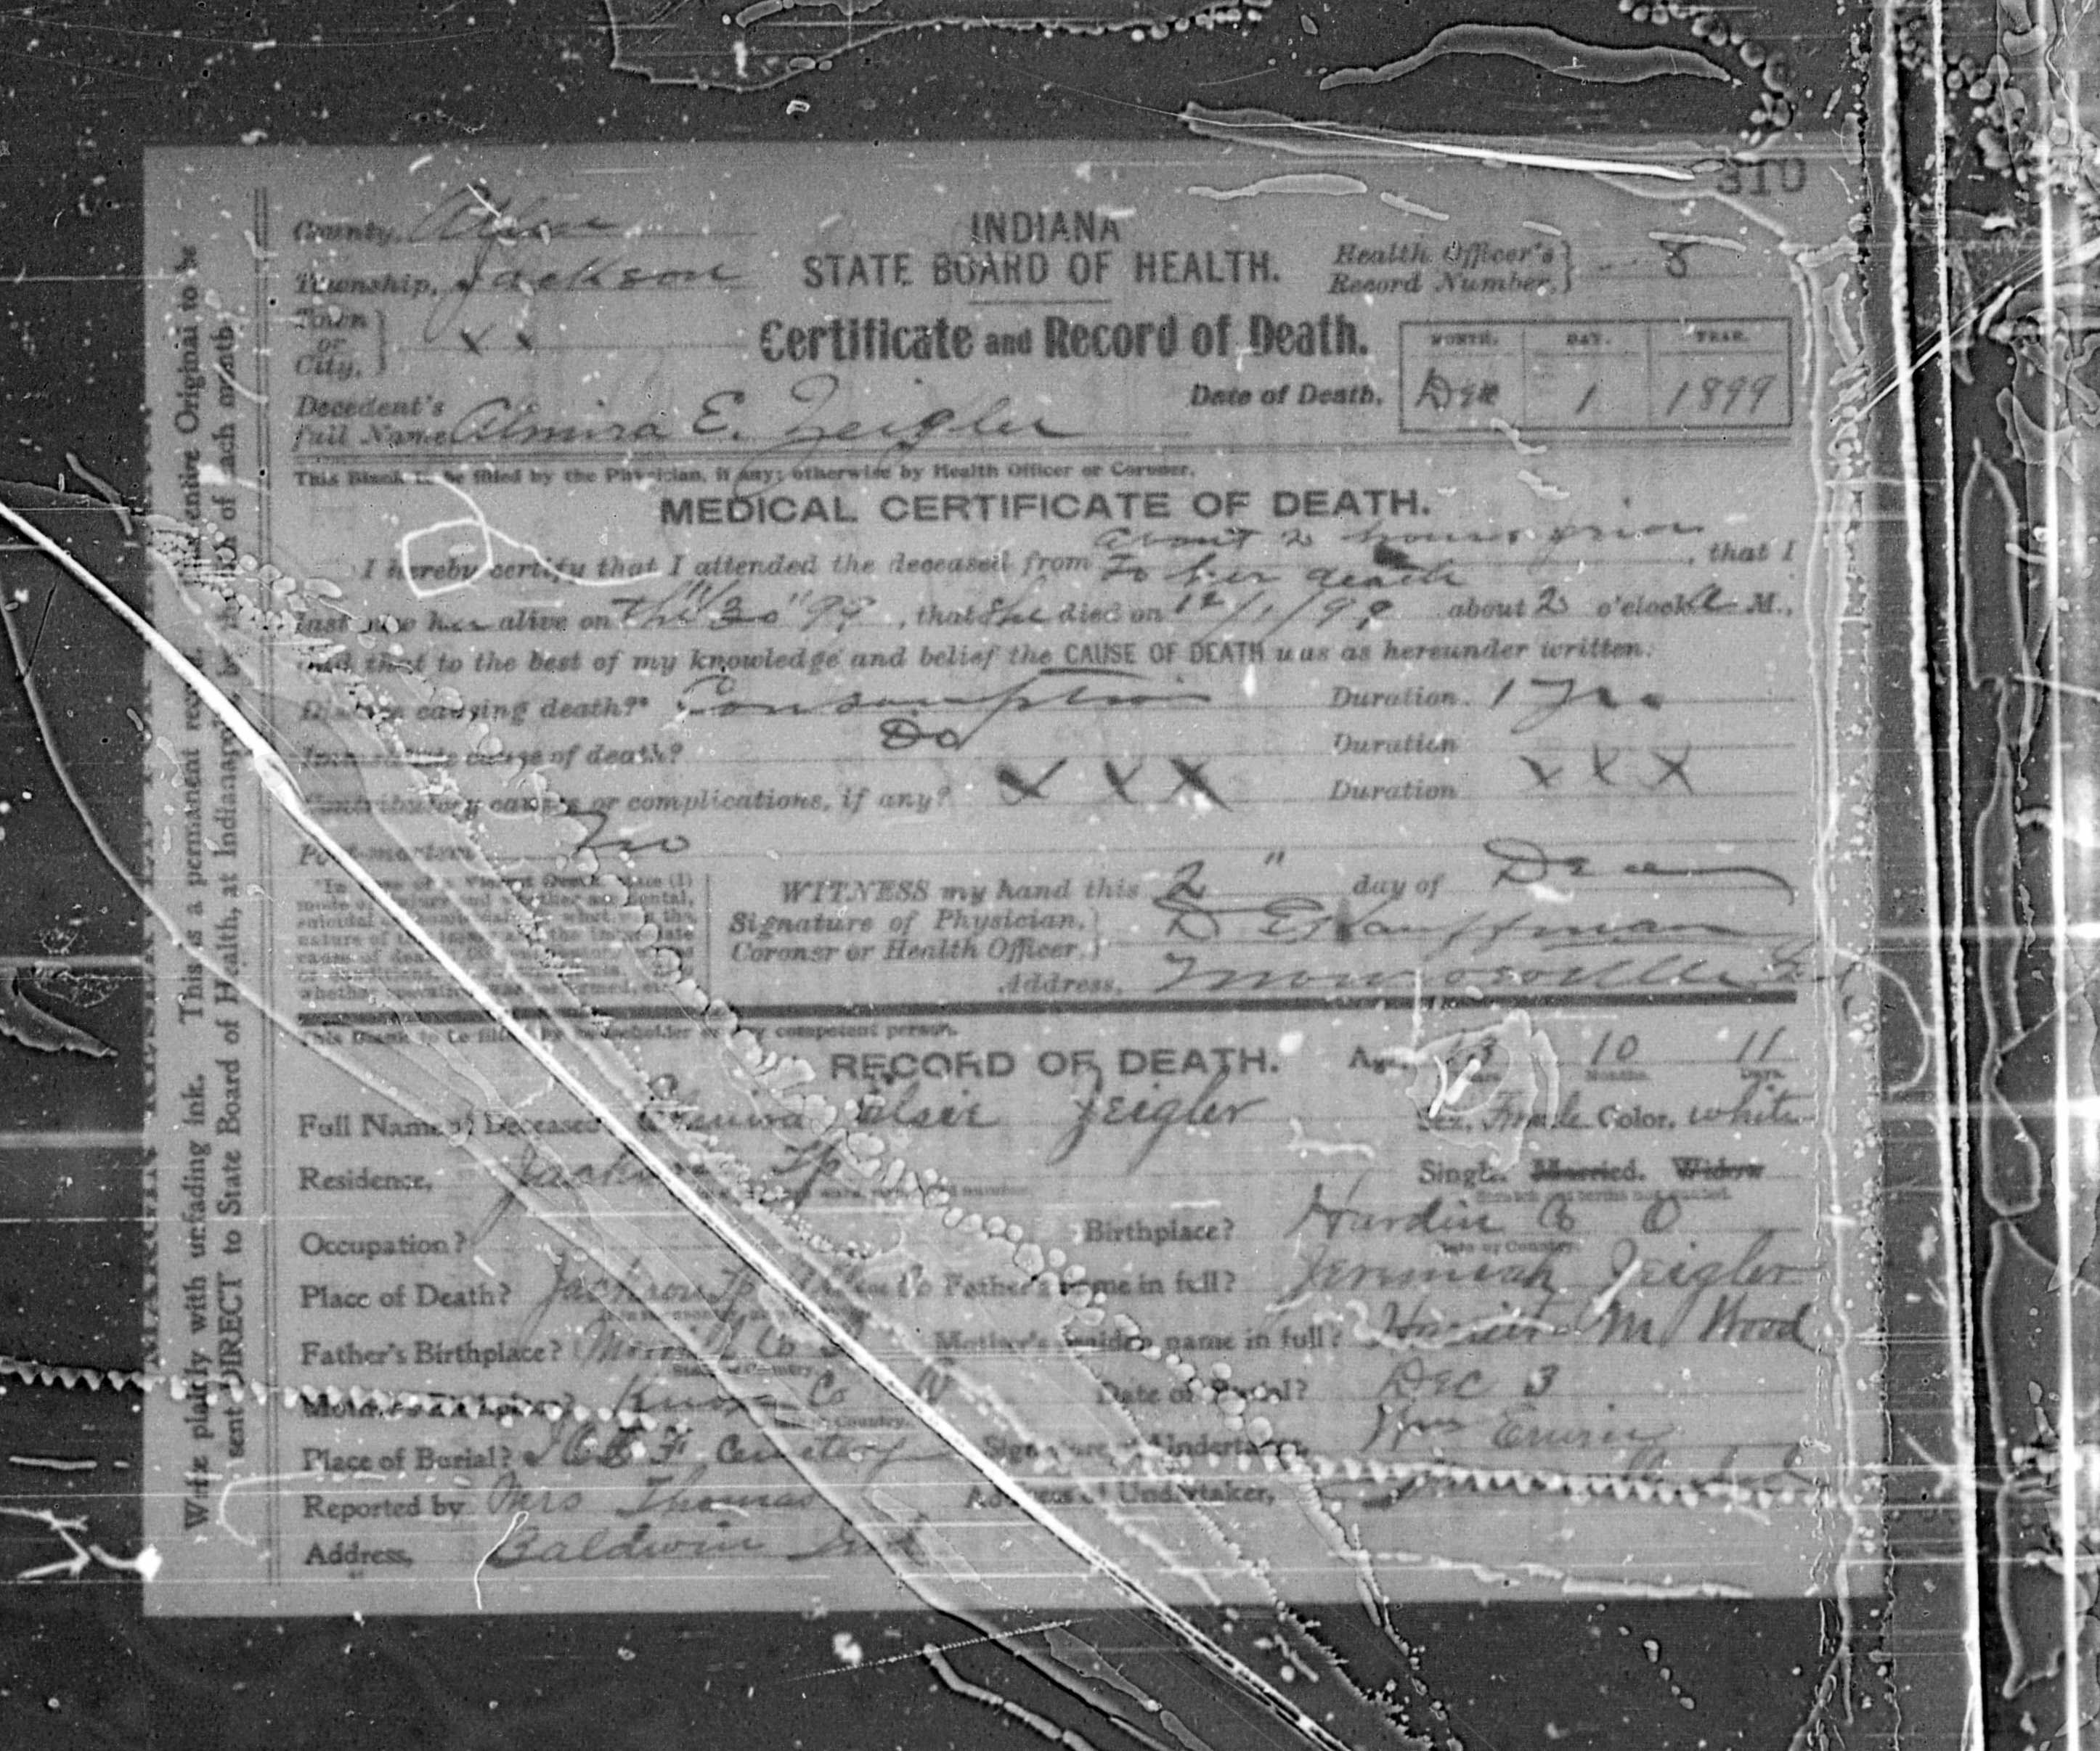 310
County, Allen
INDIANA
Township, Jackson
STATE BOARD OF HEALTH.
Health Officer's
Record Number, 8
Town
or
City, x x
Certificate and Record of Death.
MONTH. DAY. YEAR.
Date of Death, Dec 1 1899
Decedent's
full Name Almira E. Zeigler
This Blank to be filled by the Physician, if any; otherwise by Health Officer or Coroner.
MEDICAL CERTIFICATE OF DEATH.
about 2 hours prior
I hereby certify that I attended the deceased from to her death, that I
last saw her alive on 11/30" 99, that she died on 12/1/99 about 2 o'clock A M.,
and that to the best of my knowledge and belief the CAUSE OF DEATH was as hereunder written:
Disease causing death?* Consumption Duration. 1 Yr.
Immediate cause of death? Do Duration
Contributory causes or complications, if any? X X X Duration X X X
Post-mortem No
WITNESS my hand this 2" day of Dec
Signature of Physician,
Coroner or Health Officer, D E Kauffman
Address, Monroeville Ind.
This Blank to be filled by householder or any competent person.
RECORD OF DEATH. Age, 10 Months. 11 Days.
Full Name of Deceased Elmira Elsie Zeigler Sex, Female Color, White
Residence, Jackson Tp Single. Married. Widow
Occupation? Birthplace? Hardin Co O
State or Country.
Place of Death? Jackson Tp Allen Co Father's name in full? Jeremiah Zeigler
Father's Birthplace? Co Mother's maiden name in full? M Wood
State or Country.
Mother's Birthplace? Knox Co Date of Burial? Dec 3
State or Country.
Place of Burial? I O O F Cemetery Signature of Undertaker, Wm Erwin
Reported by Mrs Thomas Address of Undertaker, Ind
Address, Baldwin Ind
Write plainly with unfading ink. This is a permanent record. Entire Original to be
sent DIRECT to State Board of Health, at Indianapolis, by the of each month.